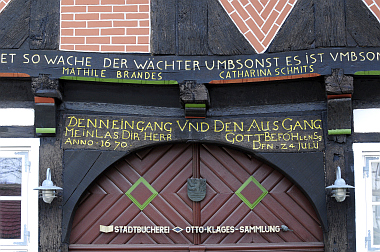 ET SO WACHE DER WACHTER UMBSONST ES IST VMBSON
MATHILE BRANDES CATHARINA SCHMITS
DENN EINGANG VND DEN AUSGANG
MEIN LAS DIR HERR GOTT BEFOHLENS
ANNO · 1670 DEN · 24 JULŸ
STADTBÜCHEREI OTTO-KLAGES-SAMMLUNG